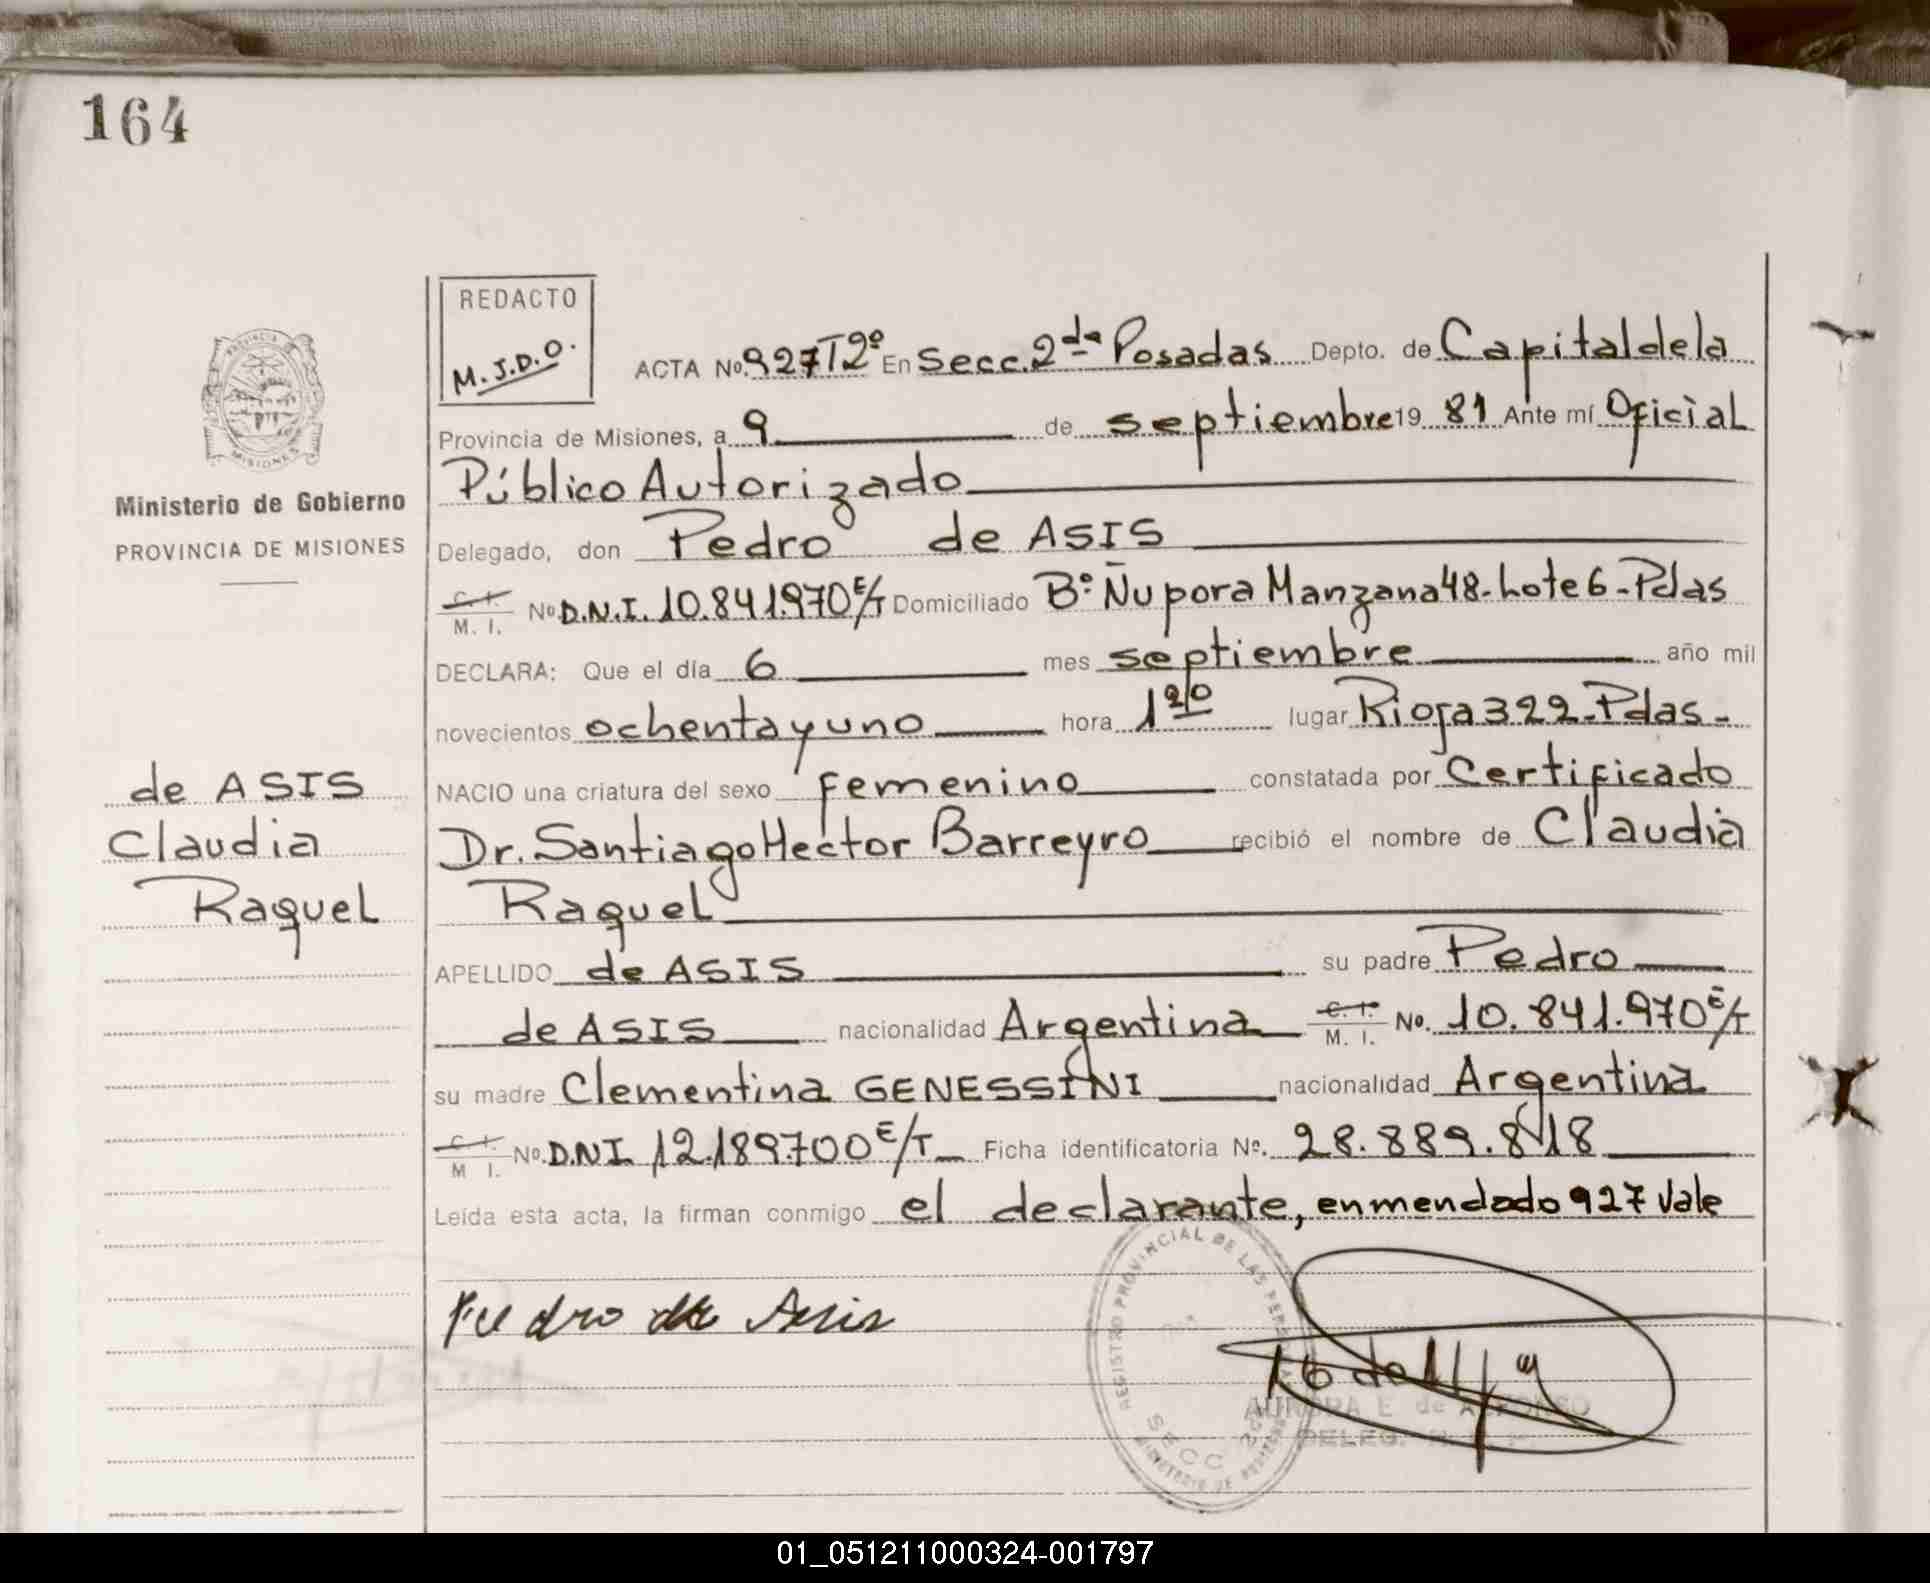 164
REDACTO
M.J.D.O.
ACTA No. 927 T2º En Secc. 2da Posadas Depto. de Capital de la
Provincia de Misiones, a 9 de septiembre 19 81 Ante mí Oficial
Público Autorizado
Delegado, don Pedro de ASIS
C. I. M. I. No. D.N.I. 10.841.970 E/T Domiciliado Bº Ñu pora Manzana 48-Lote 6-Pdas
DECLARA: Que el día 6 mes septiembre año mil
novecientos ochenta y uno hora 1 20 lugar Rioja 322-Pdas-
NACIO una criatura del sexo femenino constatada por Certificado
Dr. Santiago Hector Barreyro recibió el nombre de Claudia
Raquel
APELLIDO de ASIS su padre Pedro
de ASIS nacionalidad Argentina C. I. M. I. No. 10.841.970 E/T
su madre Clementina GENESSINI nacionalidad Argentina
C. I. M. I. No. DNI 12.189.700 E/T Ficha identificatoria Nº. 28.889.818
Leída esta acta, la firman conmigo el declarante, enmendado 927 Vale
Pedro de Asis
PROVINCIA DE MISIONES
Ministerio de Gobierno
PROVINCIA DE MISIONES
de ASIS
Claudia
Raquel
REGISTRO PROVINCIAL DE LAS PERSONAS
SECC 2da
AURORA E de ALFONSO
DELEG.
01_051211000324-001797